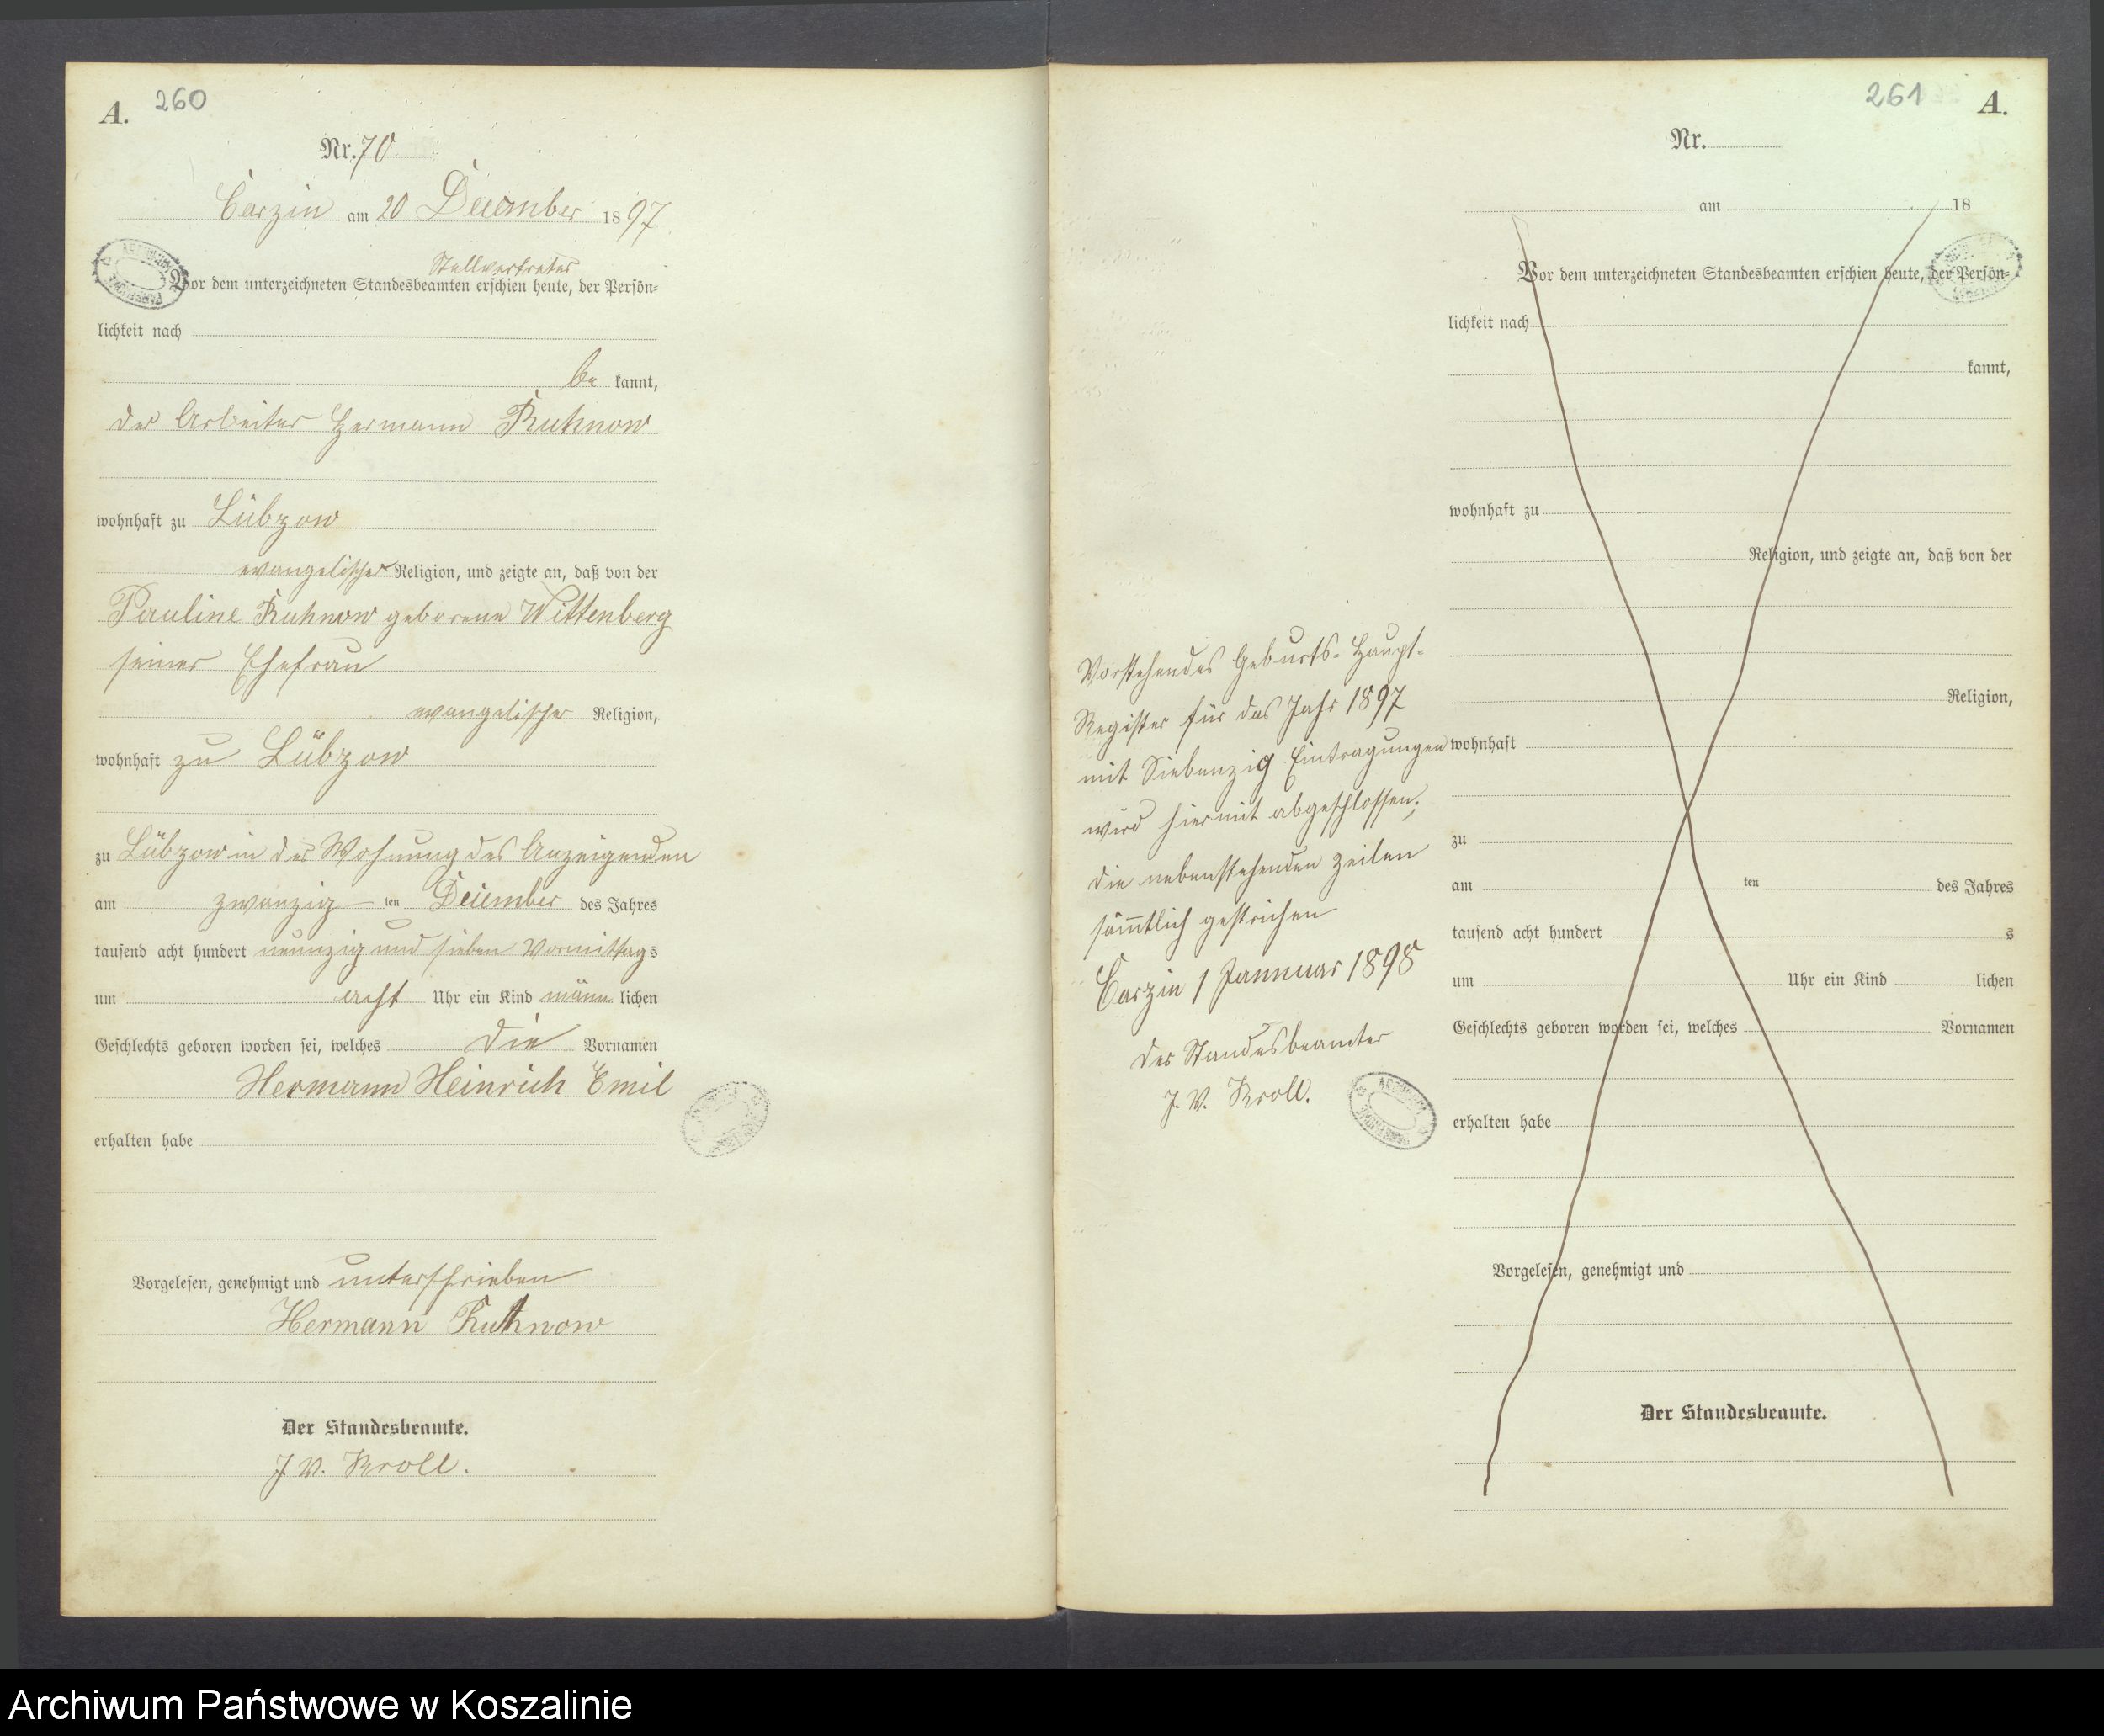 A. 260
Nr. 70
Carzin am 20 December 1897
Stellvertreter
Vor dem unterzeichneten Standesbeamten erschien heute, der Persön-
lichkeit nach
be kannt,
der Arbeiter Hermann Kuhnow
wohnhaft zu Lübzow
evangelischer Religion, und zeigte an, daß von der
Pauline Kuhnow geborene Wittenberg
seiner Ehefrau
evangelischer Religion,
wohnhaft zu Lübzow
zu Lübzow in der Wohnung des Anzeigenden
am zwanzig ten December des Jahres
tausend acht hundert neunzig und sieben Vormittags
um acht Uhr ein Kind männ lichen
Geschlechts geboren worden sei, welches die Vornamen
Hermann Heinrich Emil
erhalten habe
Vorgelesen, genehmigt und unterschrieben
Hermann Kuhnow
Der Standesbeamte.
J. V. Kroll.
261 A.
Nr.
am 18
Vor dem unterzeichneten Standesbeamten erschien heute, der Persön-
lichkeit nach
kannt,
wohnhaft zu
Religion, und zeigte an, daß von der
Religion,
wohnhaft
zu
am ten des Jahres
tausend acht hundert s
um Uhr ein Kind lichen
Geschlechts geboren worden sei, welches Vornamen
erhalten habe
Vorgelesen, genehmigt und
Der Standesbeamte.
Vorstehendes Geburts-Haupt-
Register für das Jahr 1897
mit Siebenzig Eintragungen
wird hiermit abgeschlossen;
die nebenstehenden Zeilen
sämmtlich gestrichen
Carzin 1 Jannuar 1898
Der Standesbeamter
J. V. Kroll.
Archiwum Państwowe w Koszalinie